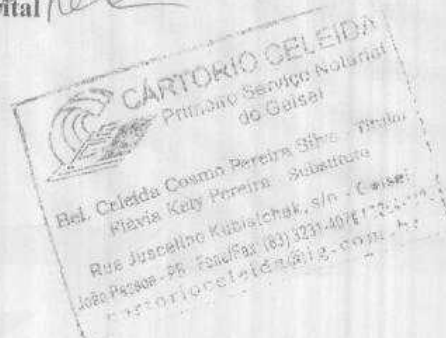 vital
CARTORIO CELEIDA
Primeiro Serviço Notarial
do Geisel
Bel. Celeida Cosmo Pereira Silva - Titular
Flavia Kely Pereira - Substituta
Rua Juscelino Kubistchek, s/n - Geisel
João Pessoa-PB - Fone/Fax (83) 3231-4076
cartorioceleida@ig.com.br